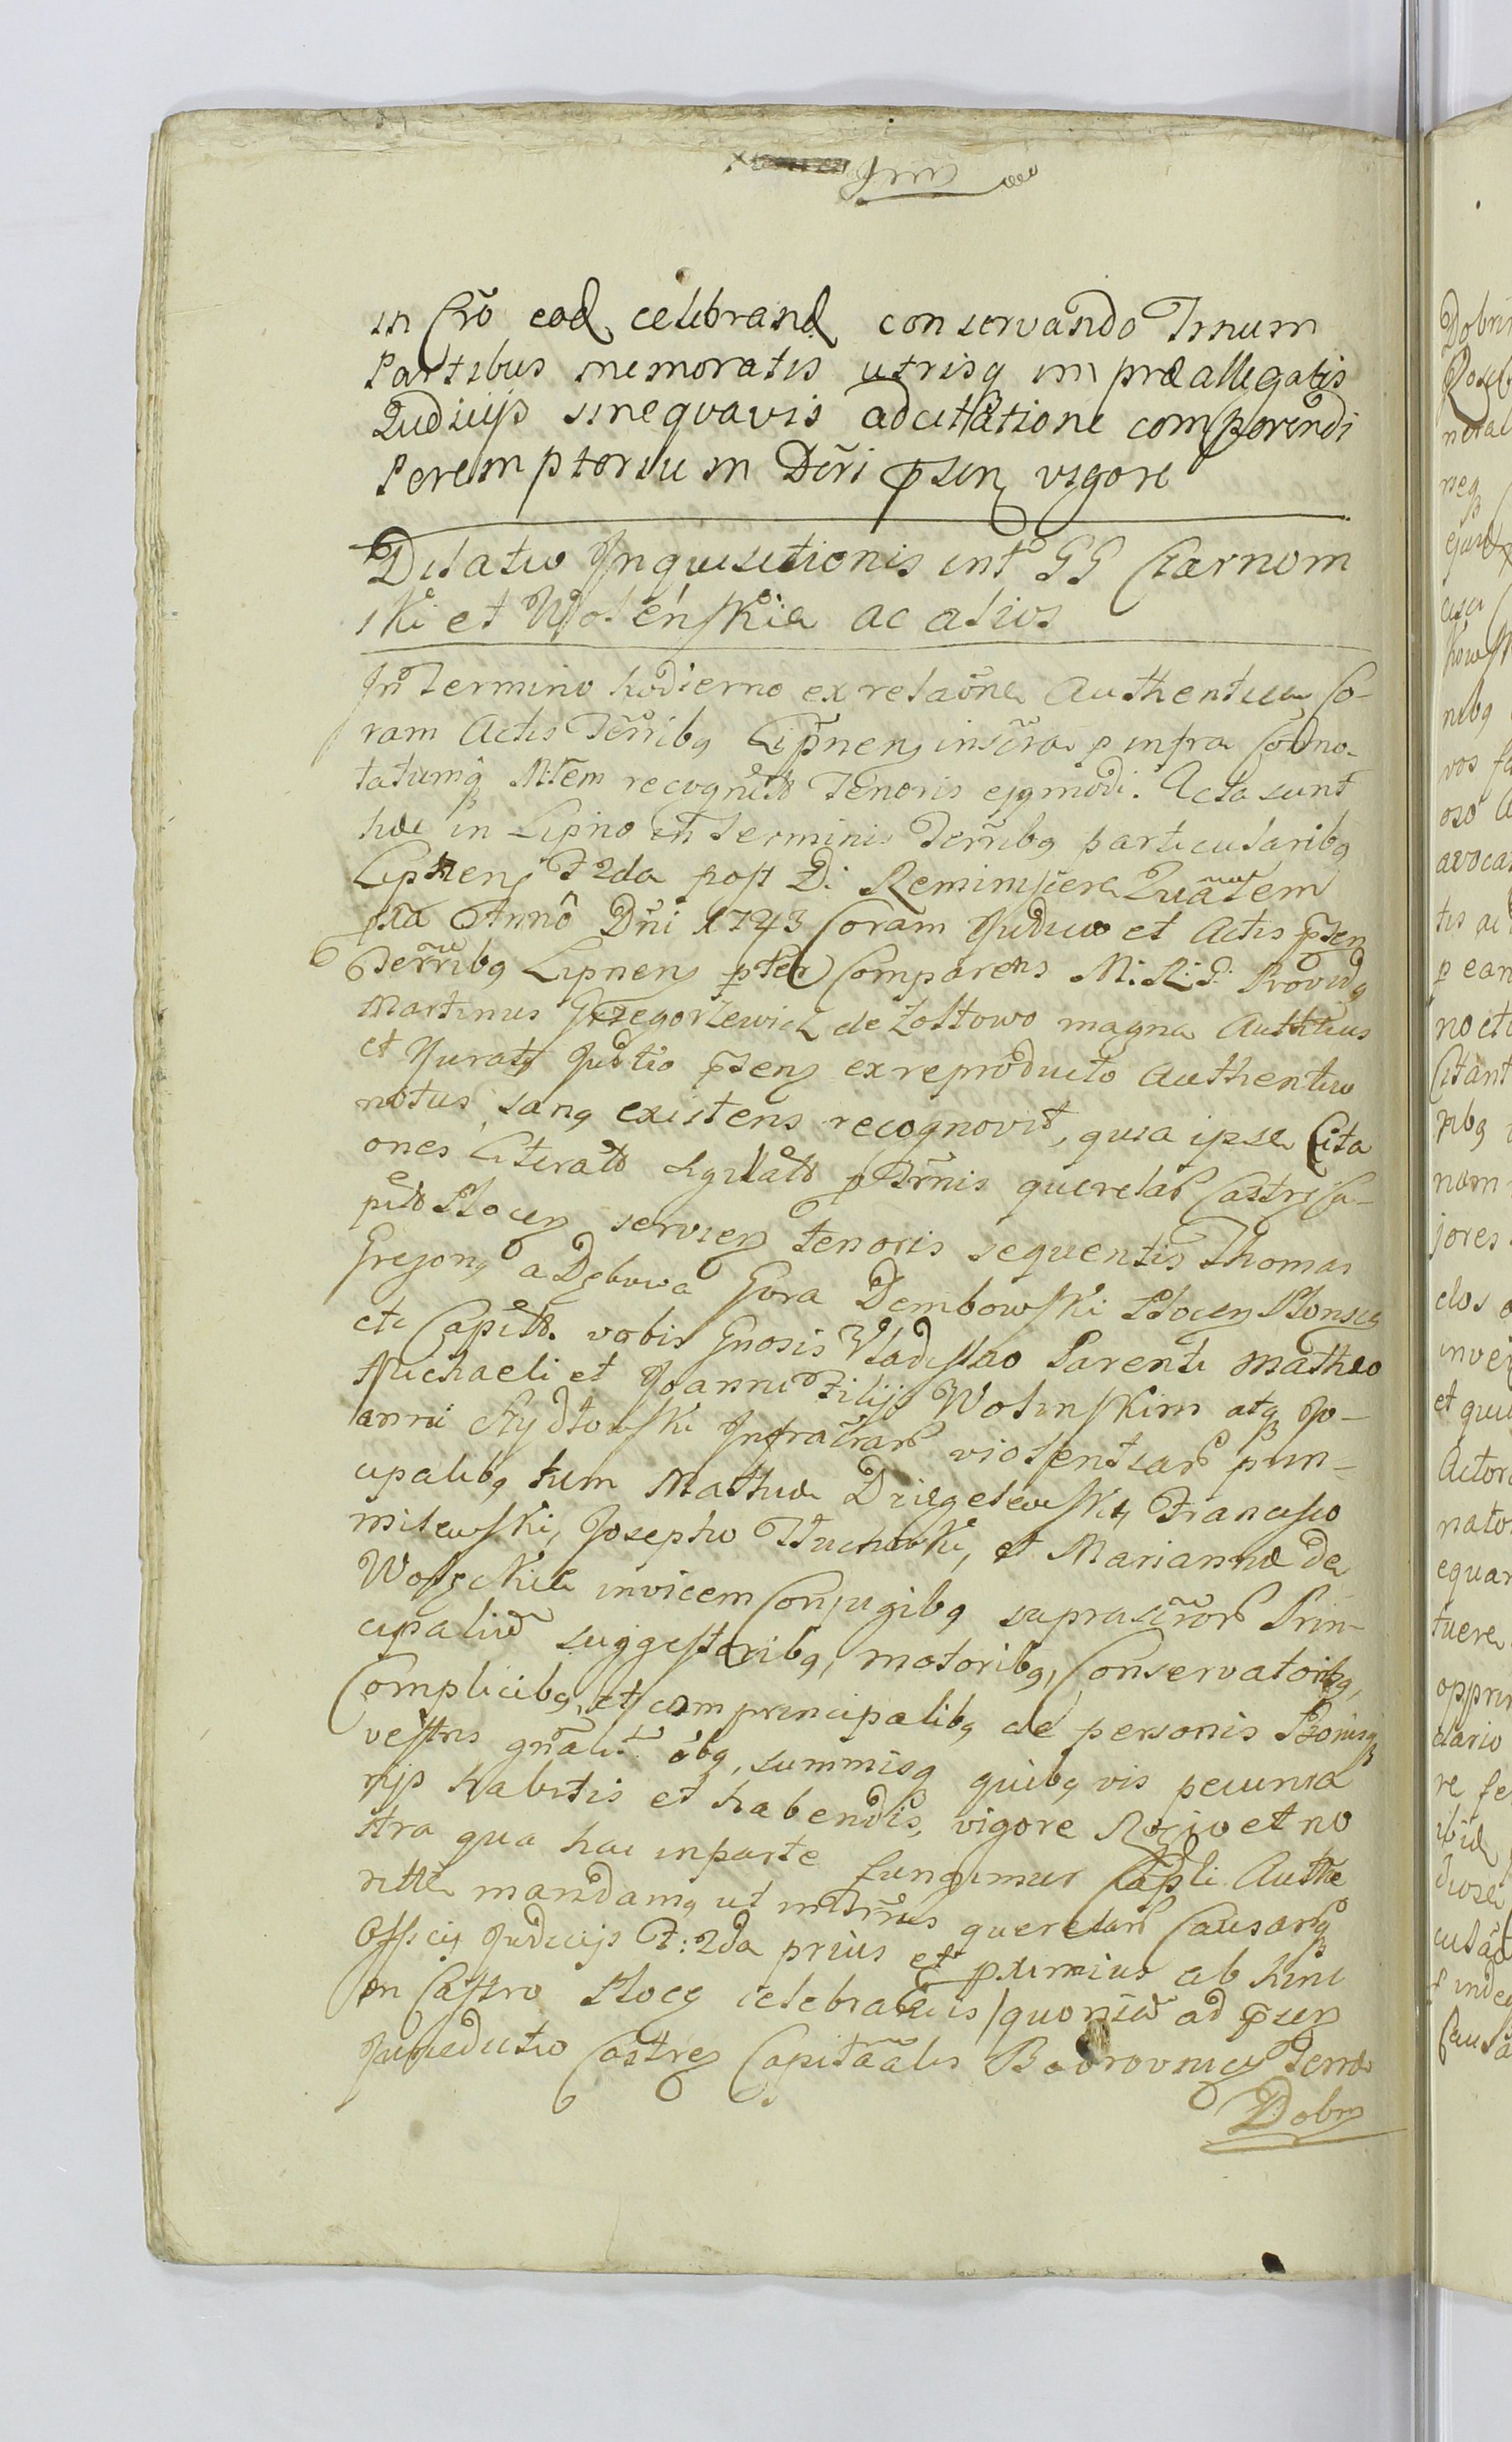 in Cro eod celebrand conservando Trnum
Partibus memoratis utrisq in præallegatis
Judicijs sinequavis adcitatione comparendi
Peremptorium Dcri psen vigore
Dilatio Inquisitionis int GG Czarnom
ski et Woleńskie ac alios
In Termino hodierno ex relaõne Authentica Co-
ram Actis Terribq Lipnen inscra p infra Codno-
tatumq Mrem recognit Tenoris ejqmodi. Acta sunt
hæc in Lipno in Terminis Terribq particularibq
Lipnen F 2da post D: Reminiscere Quatem
pxa Anno Dni 1743 Coram Judicio et Actis psen
Terribq Lipnen pter Comparens M: R: P: Providq
Martinus Grzegorzewicz de Zołtowo magna Autticus
et Juratq Judtio psens ex reproducto Authentico
notus, sanq existens recognovit, quia ipse Cita
ones Literatt sigillatt p Trnis querelar Castr Ca-
pitt Plocen servien tenoris sequentis Thomas
Gregorq a Dębowa Gora Dembowski Plocen Plonscen
etc Capitt. vobis Gnosis Vladislao Parenti Matheo
Michaeli et Joanni Filijs Wolinskim atq Jo-
anni Rydłowski Infracrar violentiar prin-
cipalibq tum Mathiæ Dziegelewski, Francisco
Milewski, Josepho Tłuchowski, et Mariannæ de
Wolęckie invicem Conjugibq suprascror Prin-
cipaliu suggestoribq, motoribq, Conservatoribq,
Complicibq, et comprincipalibq de personis Bonisq
vestris gnalit oibq, summisq quibq vis pecunia
rijs habitis et habendis, vigore Regio et no
stra qua hac inparte fungimur Capli Autthe
ritte mandamq ut in Trnis querelar Causarq
Officij Judicijs F: 2da prius et pximius ab hinc
in Castro Ploc celebrandis / quoniã ad psen
Jurisdictio Castren Capitaalis Bobrovnicen Terræ
Dobrn